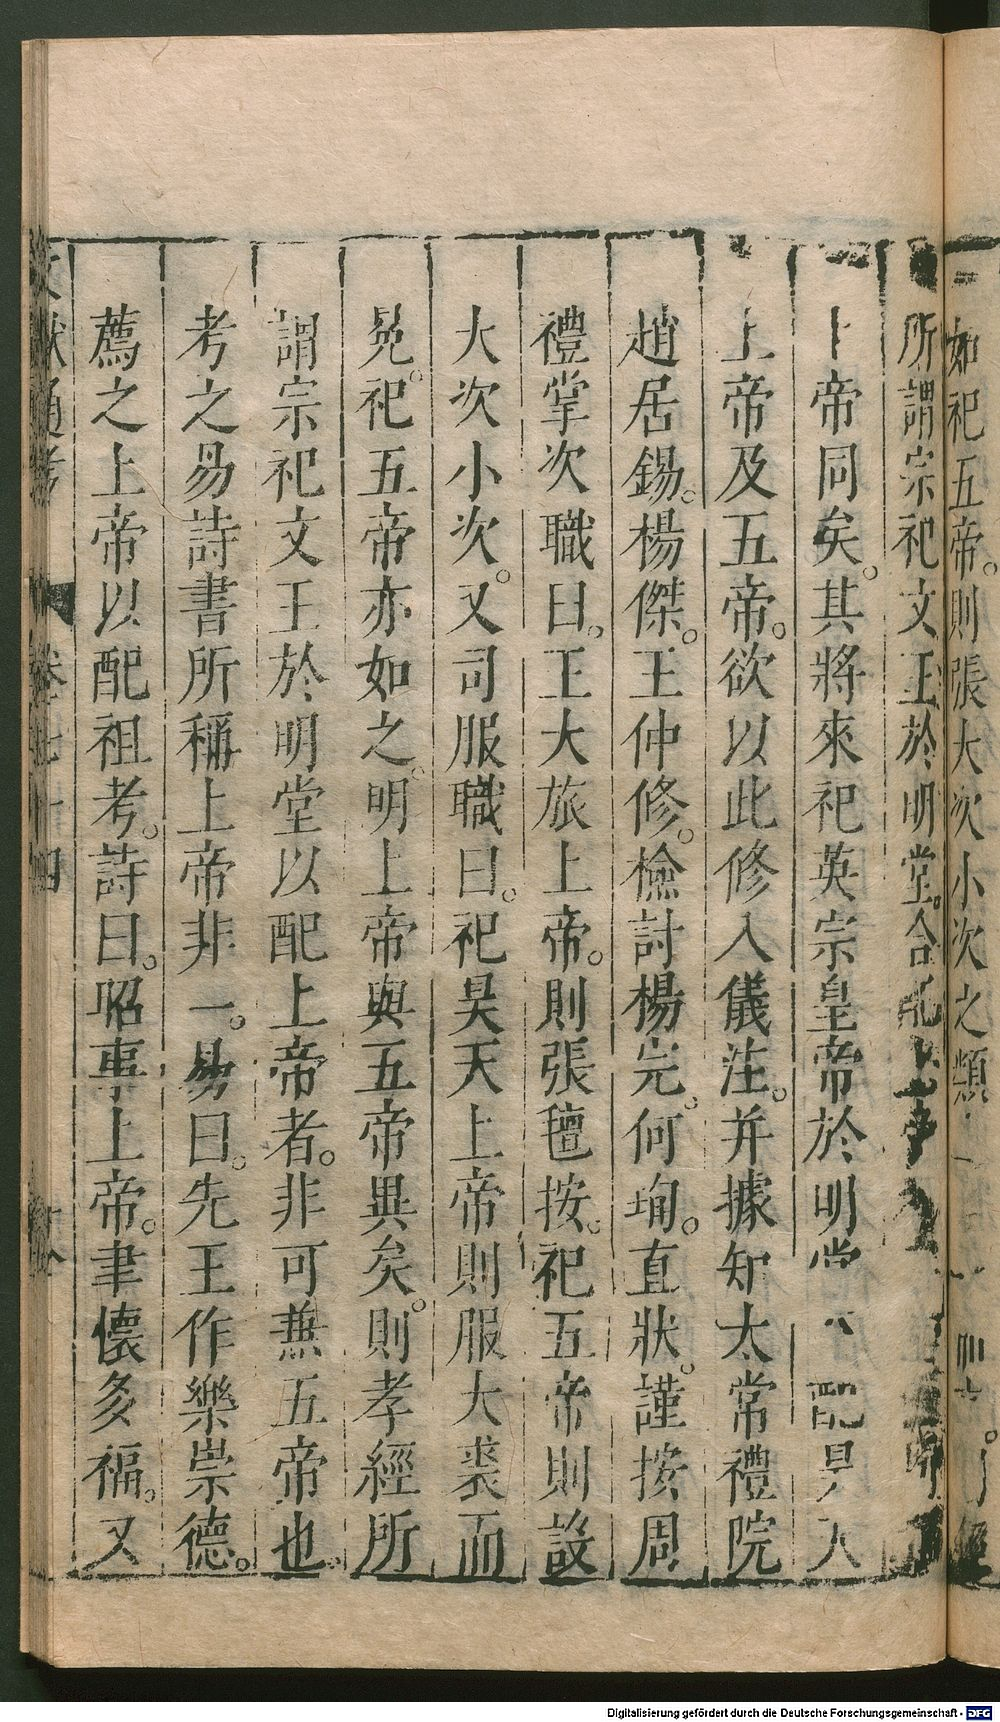 如祀五帝。則張大次小次之類
所謂宗祀文王於明堂。合
上帝同矣。其將來祀英宗皇帝於明堂 配昊天
上帝及五帝。欲以此修入儀注。并據知太常禮院
趙居錫。楊傑。王仲修。檢討楊完。何洵。直狀。謹按周
禮掌次職曰。王大旅上帝。則張氊按。祀五帝則設
大次小次。又司服職曰。祀昊天上帝則服大裘而
冕。祀五帝亦如之。明上帝與五帝異矣。則孝經所
謂宗祀文王於明堂以配上帝者。非可兼五帝也。
考之易詩書所稱上帝非一。易曰。先王作樂崇德。
薦之上帝以配祖考。詩曰。昭事上帝。聿懷多福。又
文獻通考 卷七十四
Digitalisierung gefördert durch die Deutsche Forschungsgemeinschaft - DFG